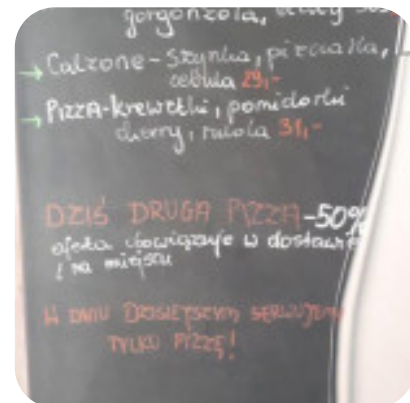 gorgonzola,
Calzone - szynka, pieczarka,
cebula 29,-
Pizza - krewetki, pomidorki
cherry, rukola 31,-
DZIŚ DRUGA PIZZA -50%
oferta obowiązuje w dostawie
i na miejscu
W DNIU DZISIEJSZYM SERWUJEMY
TYLKO PIZZĘ!